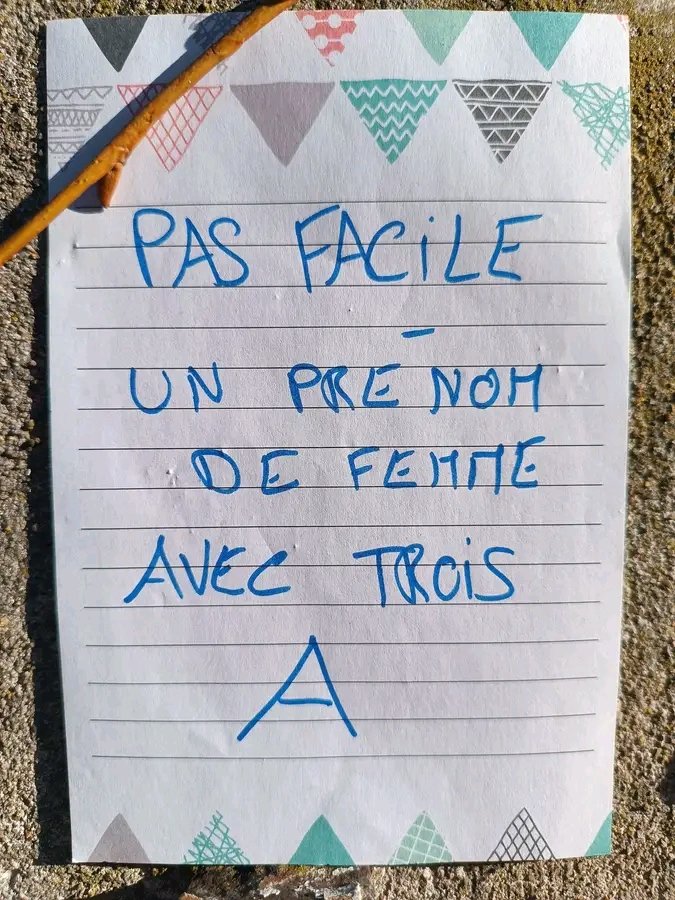 PAS FACiLE
-
UN PRENOM
DE FEMME
AVEC TROiS
A